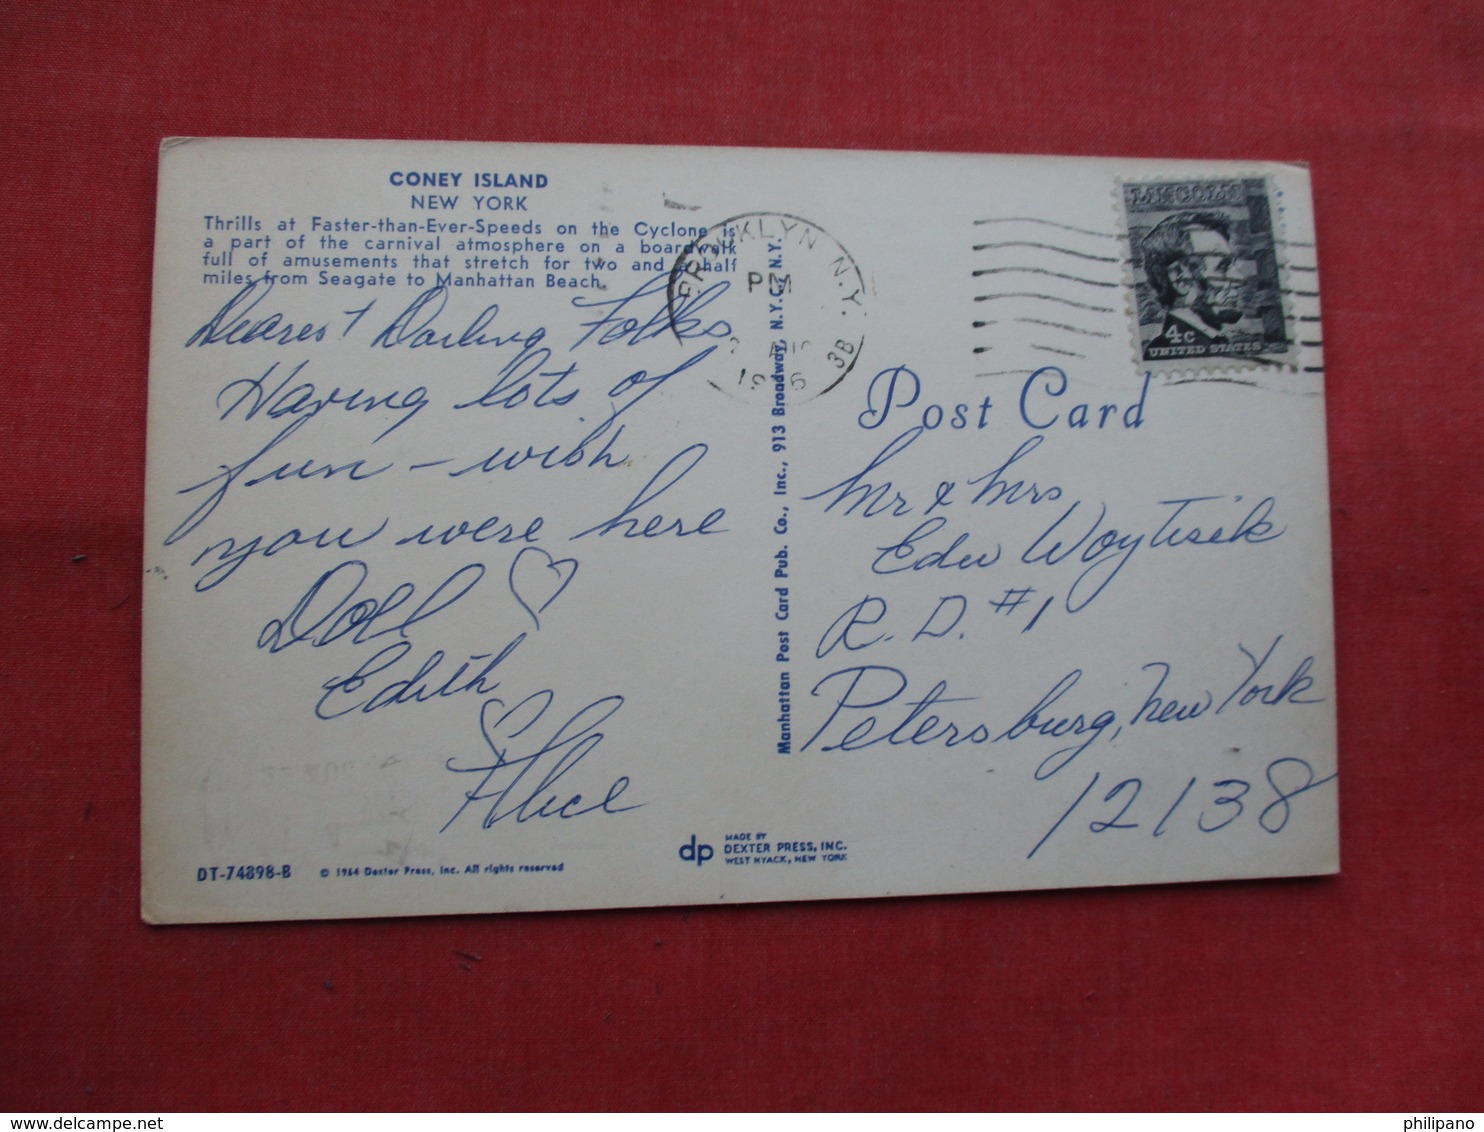 CONEY ISLAND
NEW YORK
Thrills at Faster-than-Ever-Speeds on the Cyclone is
a part of the carnival atmosphere on a boardwalk
full of amusements that stretch for two and a half
miles from Seagate to Manhattan Beach.
Dearest Darling Folks
Having lots of
fun - wish
you were here
Doll
Edith
Alice
DT-74898-B
© 1964 Dexter Press, Inc. All rights reserved
dp
MADE BY
DEXTER PRESS, INC.
WEST NYACK, NEW YORK
Manhattan Post Card Pub. Co., Inc., 913 Broadway, N.Y.C., N.Y.
BROOKLYN N.Y.
PM
3B
LINCOLN
4c
UNITED STATES
Post Card
Mr & Mrs
Edw Woytisik
R. D. #1
Petersburg, New York
12138
philipano